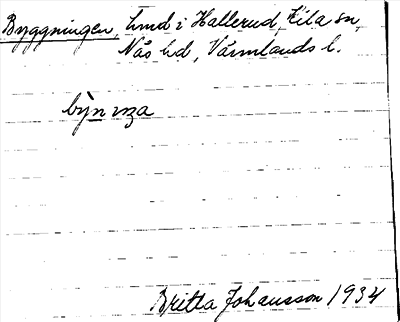 Byggningen, hmd i Hallerud, Kila sn,
Nås hd, Värmlands l.
bỳn ɩŋa
Britta Johansson 1934